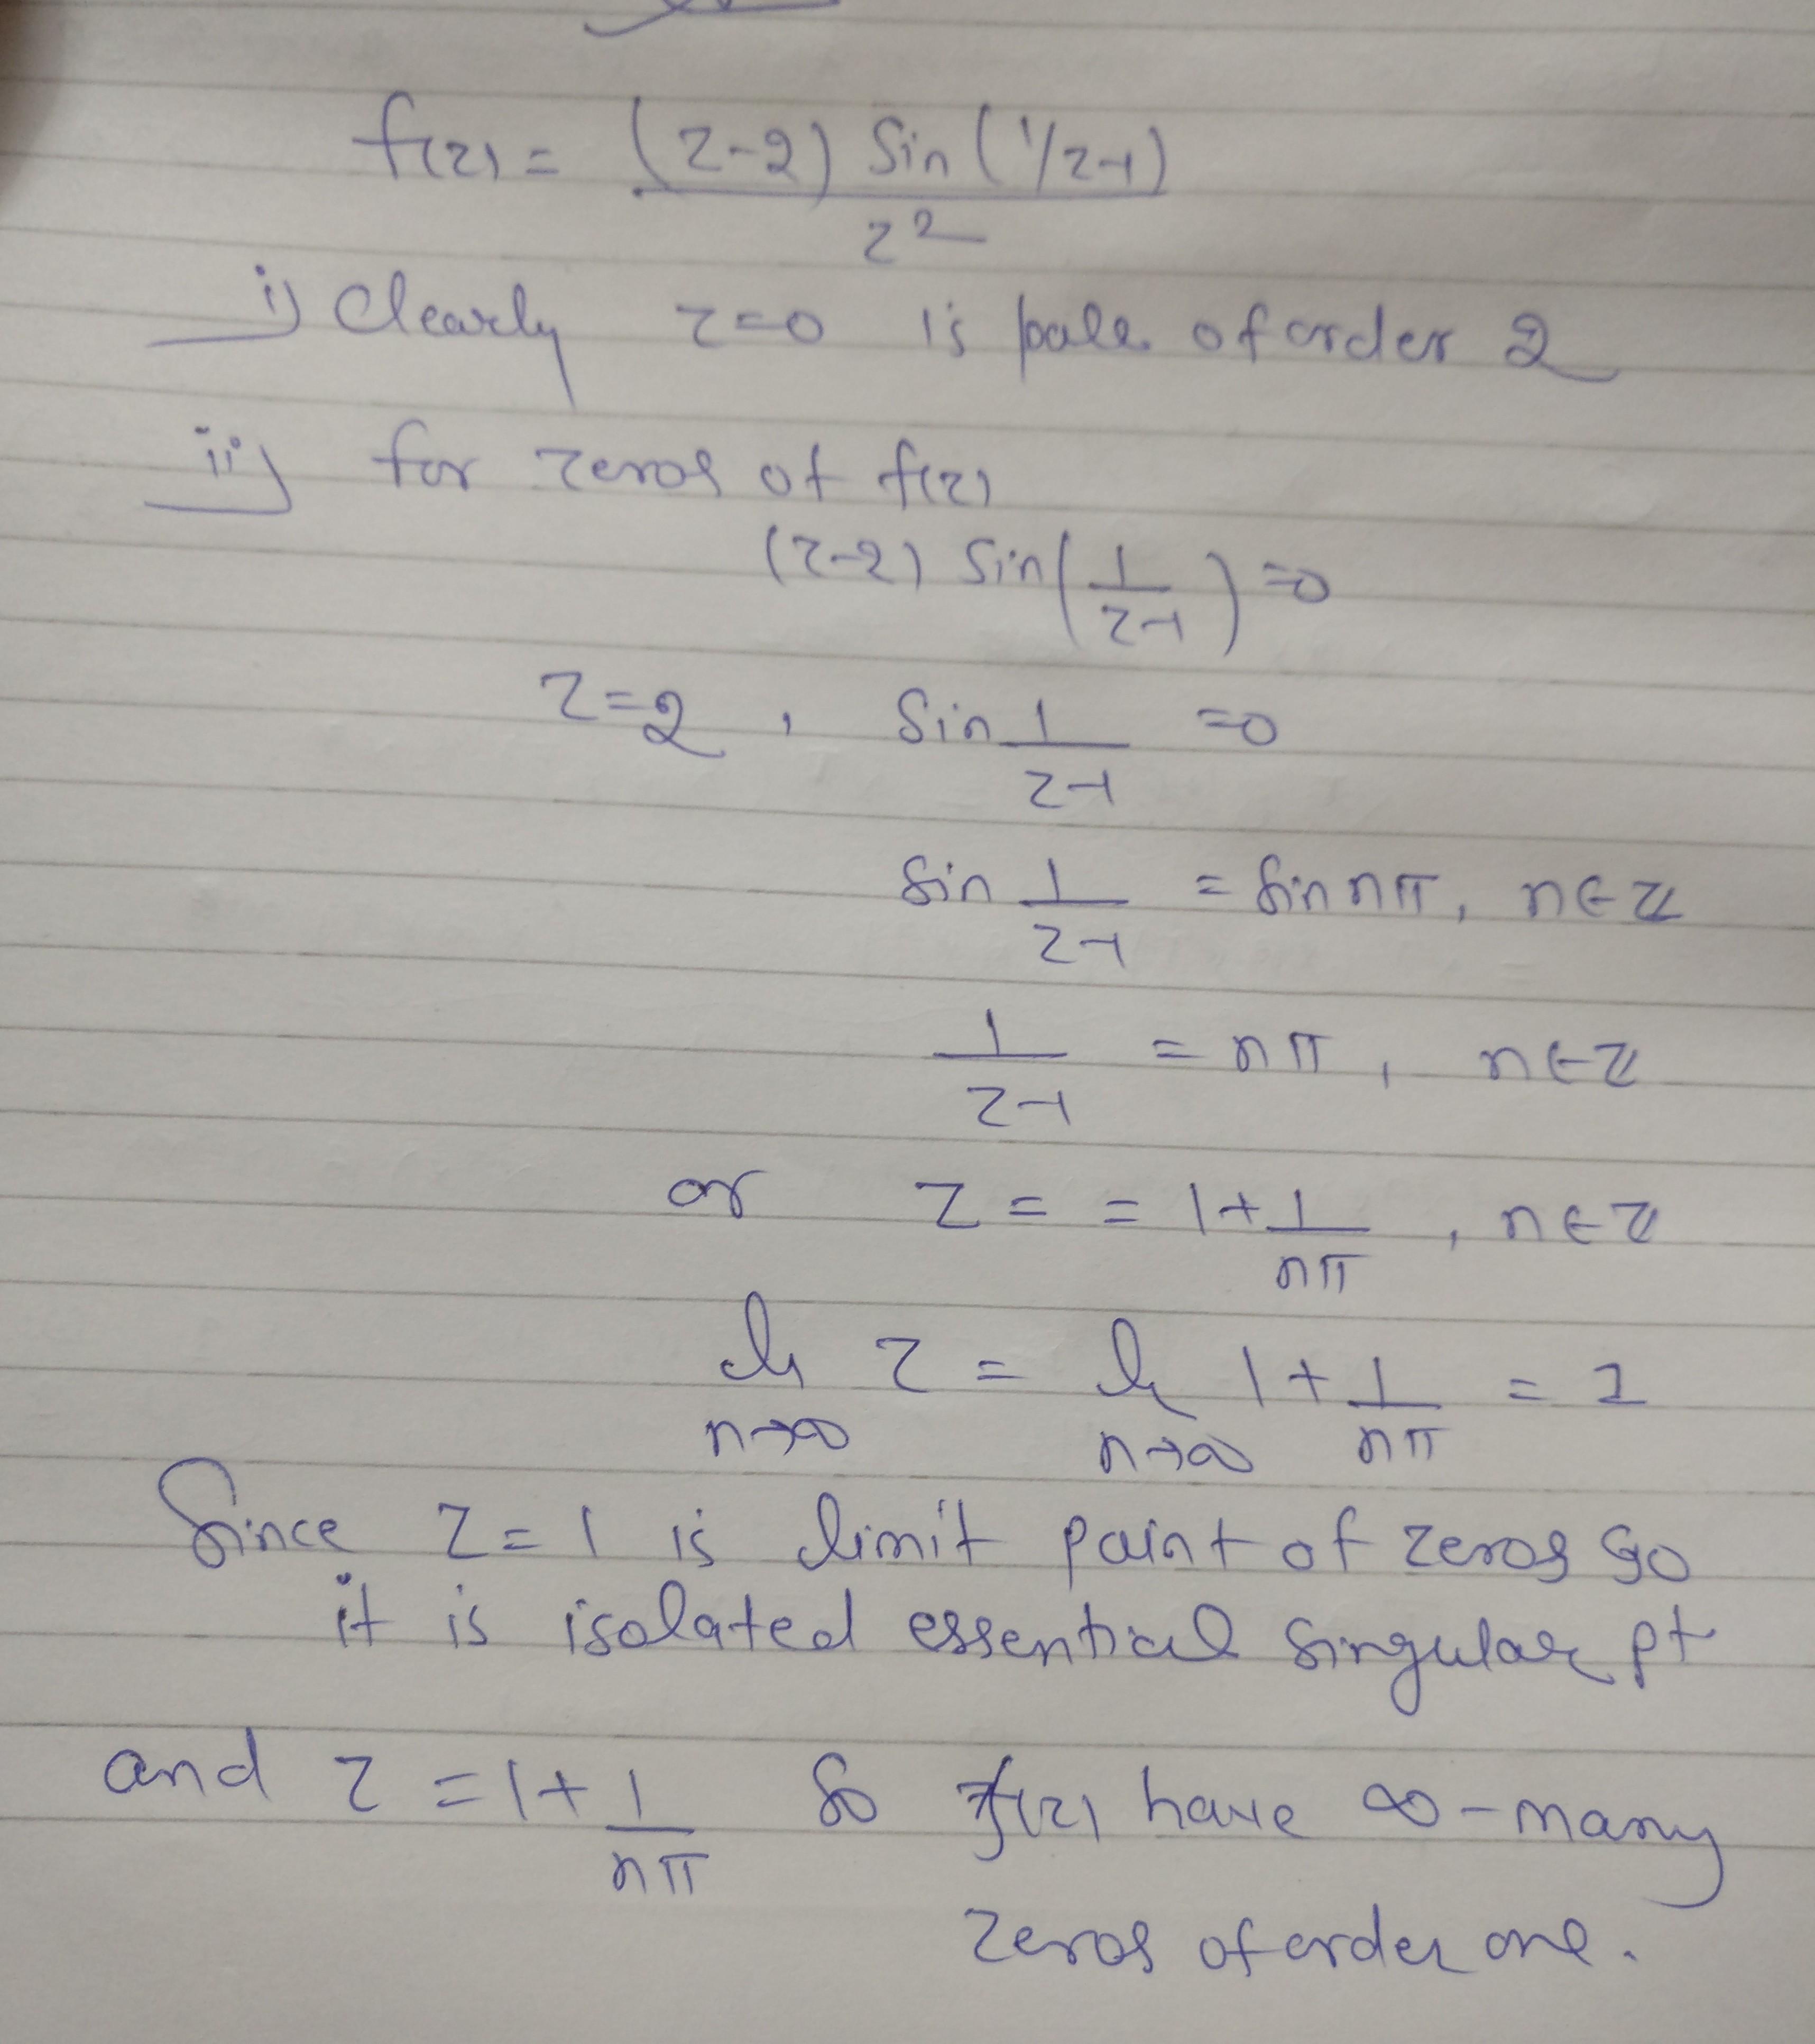 f(z) = (z-2) Sin (1/z-1)
z²
i) Clearly z=0 is pole of order 2
ii) for zeros of f(z)
(z-2) Sin(1/z-1) =0
z=2 , Sin 1/z-1 =0
Sin 1/z-1 = Sin nπ, n∈ℤ
1/z-1 = nπ, n∈ℤ
or z = = 1+1/nπ , n∈ℤ
z = 1+1/nπ = 1
n→∞ n→∞
Since z=1 is limit point of zeros so
it is isolated essential singular pt
and z = 1+1/nπ So f(z) have ∞-many
zeros of order one.